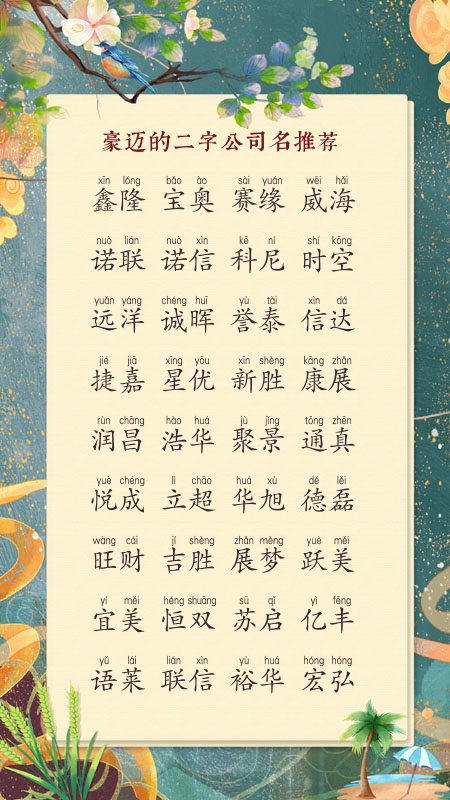 豪迈的二字公司名推荐
xīn lóng bǎo ào sài yuán wēi hǎi
鑫隆 宝奥 赛缘 威海
nuò lián nuò xìn kē ní shí kōng
诺联 诺信 科尼 时空
yuǎn yáng chéng huī yù tài xìn dá
远洋 诚晖 誉泰 信达
jié jiā xīng yōu xīn shèng kāng zhǎn
捷嘉 星优 新胜 康展
rùn chāng hào huá jù jǐng tōng zhēn
润昌 浩华 聚景 通真
yuè chéng lì chāo huá xù dé lěi
悦成 立超 华旭 德磊
wàng cái jí shèng zhǎn mèng yuè měi
旺财 吉胜 展梦 跃美
yí měi héng shuāng sū qǐ yì fēng
宜美 恒双 苏启 亿丰
yǔ lái lián xìn yù huá hóng hóng
语莱 联信 裕华 宏弘